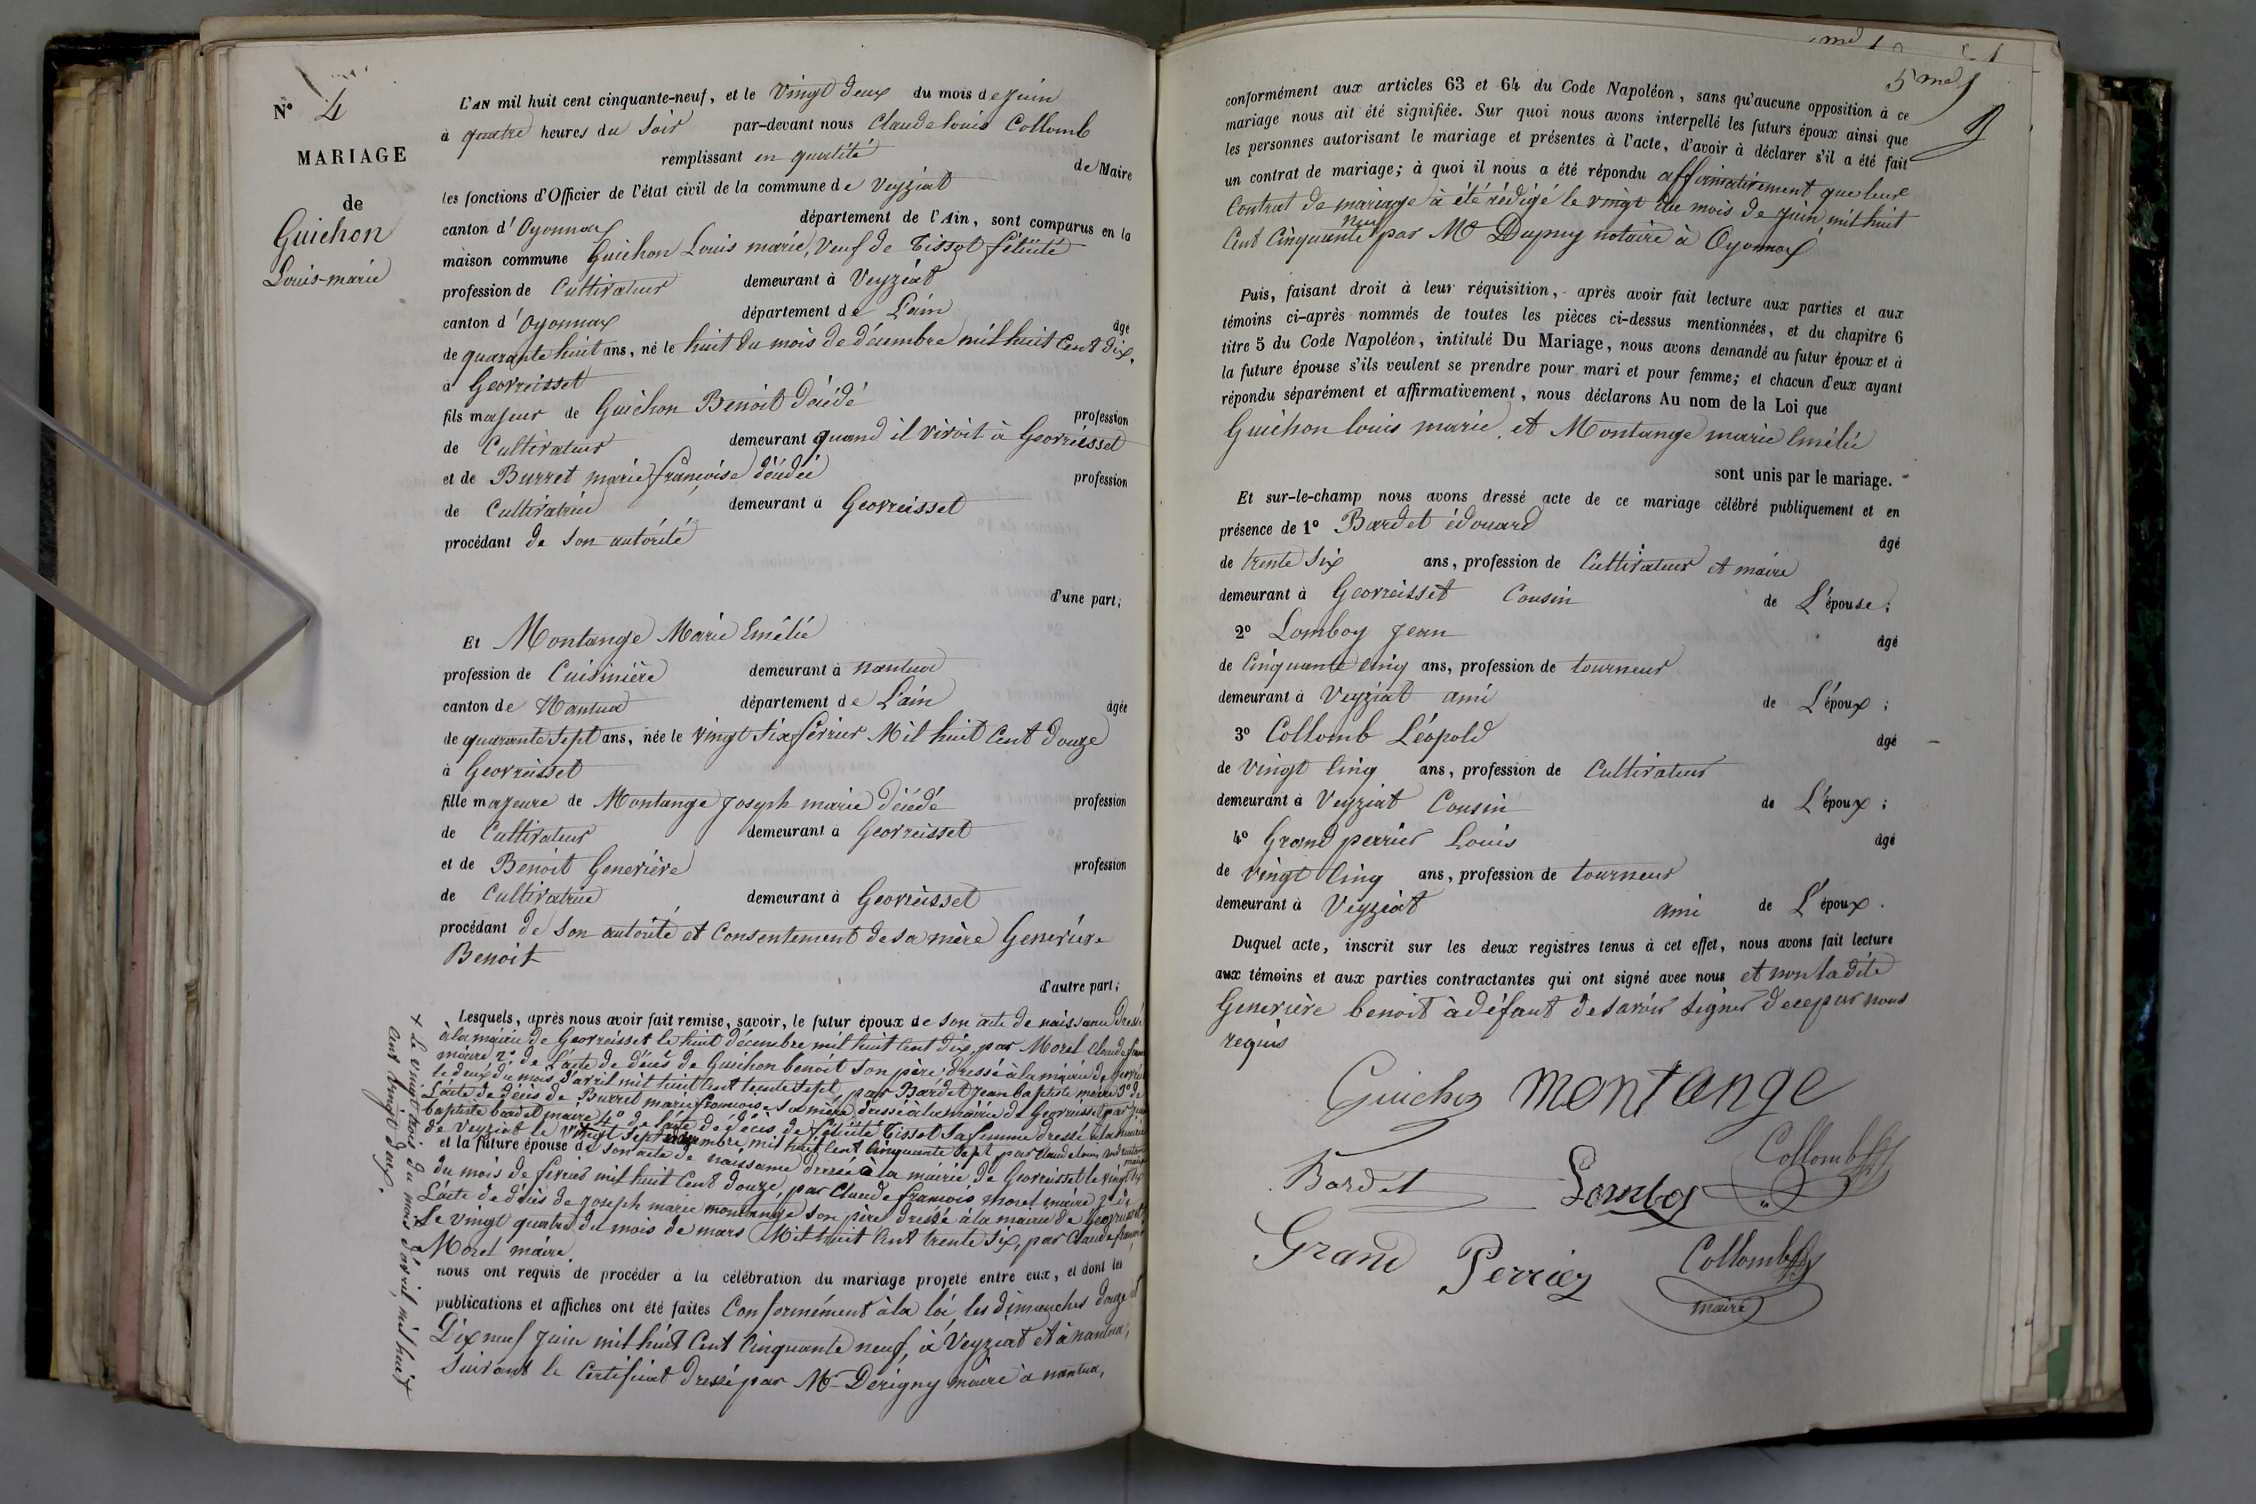 N° 4
MARIAGE
de
Guichon
Louis-marie
L'AN mil huit cent cinquante-neuf, et le vingt deux du mois de juin
à quatre heures du soir par-devant nous Claude louis Collomb
remplissant en qualité de Maire
les fonctions d'Officier de l'état civil de la commune de Veyziat
canton d'Oyonnax département de l'Ain, sont comparus en la
maison commune Guichon Louis marie, veuf de Tissot félicité
profession de Cultivateur demeurant à Veyziat
canton d'Oyonnax département de L'ain âgé
de quarante huit ans, né le huit du mois de décembre mil huit Cent dix,
à Geovreisset
fils majeur de Guichon Benoit décédé profession
de Cultivateur demeurant quand il vivoit à Geovreisset
et de Burret marie françoise décédée profession
de Cultivatrice demeurant à Geovreisset
procédant de son autorité
d'une part;
Et Montange Marie Emélie
profession de Cuisinière demeurant à nantua
canton de Nantua département de L'ain âgée
de quarante sept ans, née le vingt six février Mil huit Cent douze
à Geovreisset
fille majeure de Montange joseph marie décédé profession
de Cultivateur demeurant à Geovreisset
et de Benoit Geneviève profession
de Cultivatrice demeurant à Geovreisset
procédant de son autorité et Consentement de sa mère Geneviève
Benoit
d'autre part;
Lesquels, après nous avoir fait remise, savoir, le futur époux de son acte de naissance dressé
à la mairie de Geovreisset le huit décembre mil huit Cent dix, par Morel Claude
maire 2° de L'acte de décès de Guichon benoit son père dressé à la mairie de
le deux du mois d'avril mil huit Cent trente sept, par Bardet jean baptiste maire 3° de
L'acte de décès de Burret marie françoise sa mère, dressé à la mairie de Geovreisset par
baptiste bardet maire 4° de l'acte de décès de félicité Tissot sa femme dressé à la mairie
de Veyziat le vingt sept mil huit Cent Cinquante sept par Claude louis
et la future épouse de son acte de naissance dressé à la mairie de Geovreisset le vingt six
du mois de fevrier mil huit Cent douze, par Claude françois morel maire 2° de
L'acte de décès de joseph marie montange son père dressé à la mairie de Geovreisset
Le vingt quatre du mois de mars Mil huit Cent trente six, par Claude françois
Morel maire
nous ont requis de procéder à la célébration du mariage projeté entre eux, et dont les
publications et affiches ont été faites Conformément à la loi, les dimanches douze et
Dix neuf juin mil huit Cent Cinquante neuf, à Veyziat et à nantua,
suivant le Certificat dressé par Mr Dérigny maire à nantua,
+ Le vingt trois du mois d'avril, mil huit
Cent vingt deux.
5me
conformément aux articles 63 et 64 du Code Napoléon, sans qu'aucune opposition à ce
mariage nous ait été signifiée. Sur quoi nous avons interpellé les futurs époux ainsi que
les personnes autorisant le mariage et présentes à l'acte, d'avoir à déclarer s'il a été fait
un contrat de mariage; à quoi il nous a été répondu affirmativement que leur
Contrat de mariage à été rédigé le vingt du mois de juin, mil huit
Cent Cinquante neuf par Me Dupuy notaire à Oyonnax
Puis, faisant droit à leur réquisition, après avoir fait lecture aux parties et aux
témoins ci-après nommés de toutes les pièces ci-dessus mentionnées, et du chapitre 6
titre 5 du Code Napoléon, intitulé Du Mariage, nous avons demandé au futur époux et à
la future épouse s'ils veulent se prendre pour mari et pour femme; et chacun d'eux ayant
répondu séparément et affirmativement, nous déclarons Au nom de la Loi que
Guichon louis marie, et Montange marie Emélie
sont unis par le mariage.
Et sur-le-champ nous avons dressé acte de ce mariage célébré publiquement et en
présence de 1° Bardet édouard âgé
de trente six ans, profession de Cultivateur et maire
demeurant à Geovreisset Cousin de L'épouse;
2° Lomboy jean âgé
de Cinquante cinq ans, profession de tourneur
demeurant à Veyziat ami de L'époux;
3° Collomb Léopold âgé
de vingt Cinq ans, profession de Cultivateur
demeurant à Veyziat Cousin de L'époux;
4° Grand perrier Louis âgé
de vingt Cinq ans, profession de tourneur
demeurant à Veyziat ami de L'époux.
Duquel acte, inscrit sur les deux registres tenus à cet effet, nous avons fait lecture
aux témoins et aux parties contractantes qui ont signé avec nous et non ladite
Geneviève benoit à défaut de savoir signer de ce par nous
requis
Guichon montange
Bardet Lomboy Collomb
Grand Perrier Collomb
maire